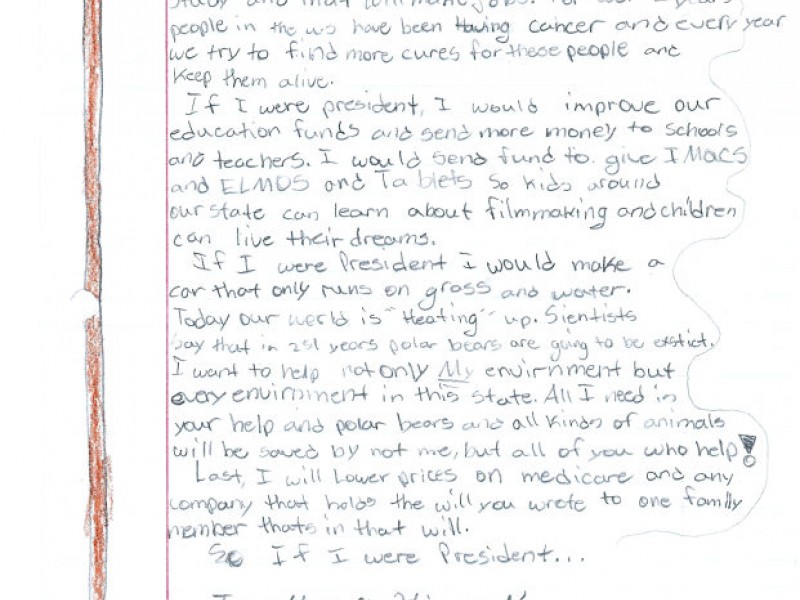 study and that
people in the us have been Having cancer and every year
we try to find more cures for these people and
Keep them alive.
If I were president, I would improve our
education funds and send more money to schools
and teachers. I would send fund to give IMacs
and ELMOS and Tablets So kids around
our state can learn about filmmaking and children
can live their dreams.
If I were President I would make a
car that only runs on grass and water.
Today our world is "Heating" up. Sientists
say that in 251 years polar bears are going to be exstict.
I want to help not only My envirnment but
every envirnment in this state. All I need is
your help and polar bears and all Kinds of animals
will be saved by not me, but all of you who help!
Last, I will Lower prices on medicare and any
company that holds the will you wrote to one family
member thats in that will.
So If I were President...